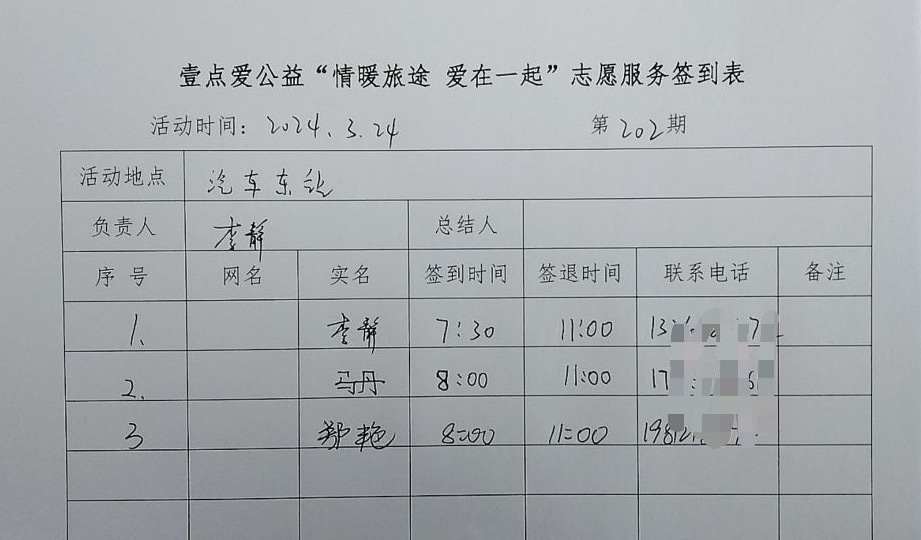 壹点爱公益“情暖旅途 爱在一起”志愿服务签到表
活动时间：2024.3.24 第202期
活动地点 汽车东站
负责人 李静 总结人
序号 网名 实名 签到时间 签退时间 联系电话 备注
1. 李静 7:30 11:00
2. 马丹 8:00 11:00
3 郑艳 8:00 11:00